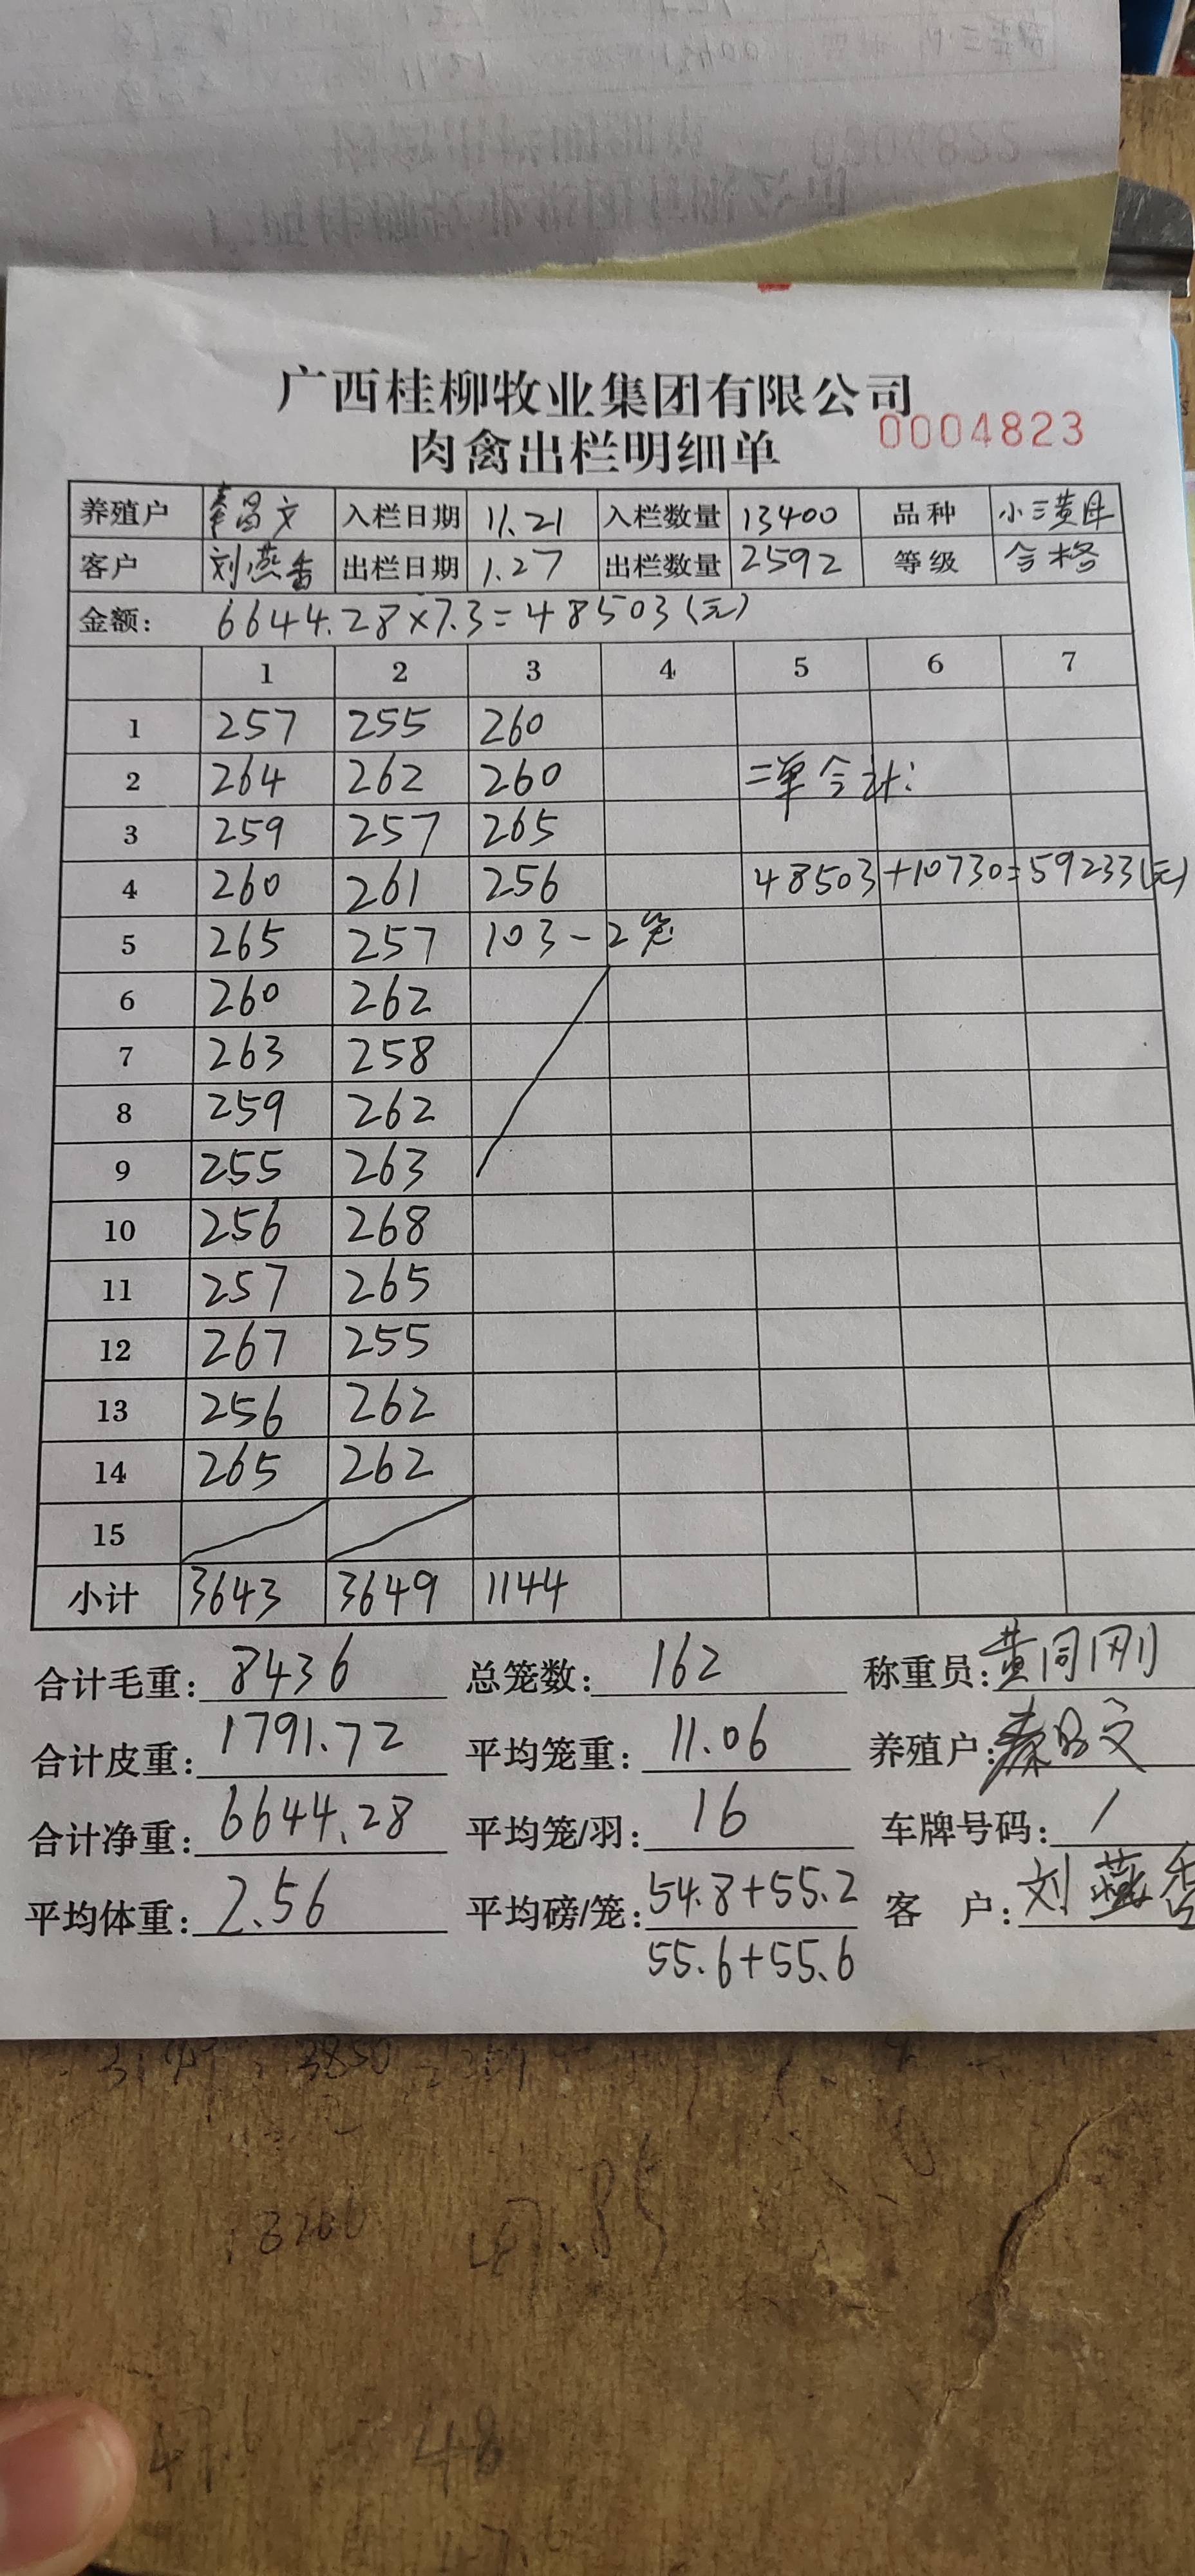 广西桂柳牧业集团有限公司
肉禽出栏明细单 0004823
养殖户 秦昌文 入栏日期 11.21 入栏数量 13400 品种 小三黄
客户 刘燕香 出栏日期 1.27 出栏数量 2592 等级 合格
金额: 6644.28×7.3=48503(元)
1 2 3 4 5 6 7
1 257 255 260
2 264 262 260 二单合计:
3 259 257 265
4 260 261 256 48503+10730=59233(元)
5 265 257 103-2笼
6 260 262
7 263 258
8 259 262
9 255 263
10 256 268
11 257 265
12 267 255
13 256 262
14 265 262
15
小计 3643 3649 1144
合计毛重: 8436 总笼数: 162 称重员: 黄同刚
合计皮重: 1791.72 平均笼重: 11.06 养殖户: 秦昌文
合计净重: 6644.28 平均笼/羽: 16 车牌号码: /
平均体重: 2.56 平均磅/笼: 54.8+55.2 客 户: 刘燕香
55.6+55.6